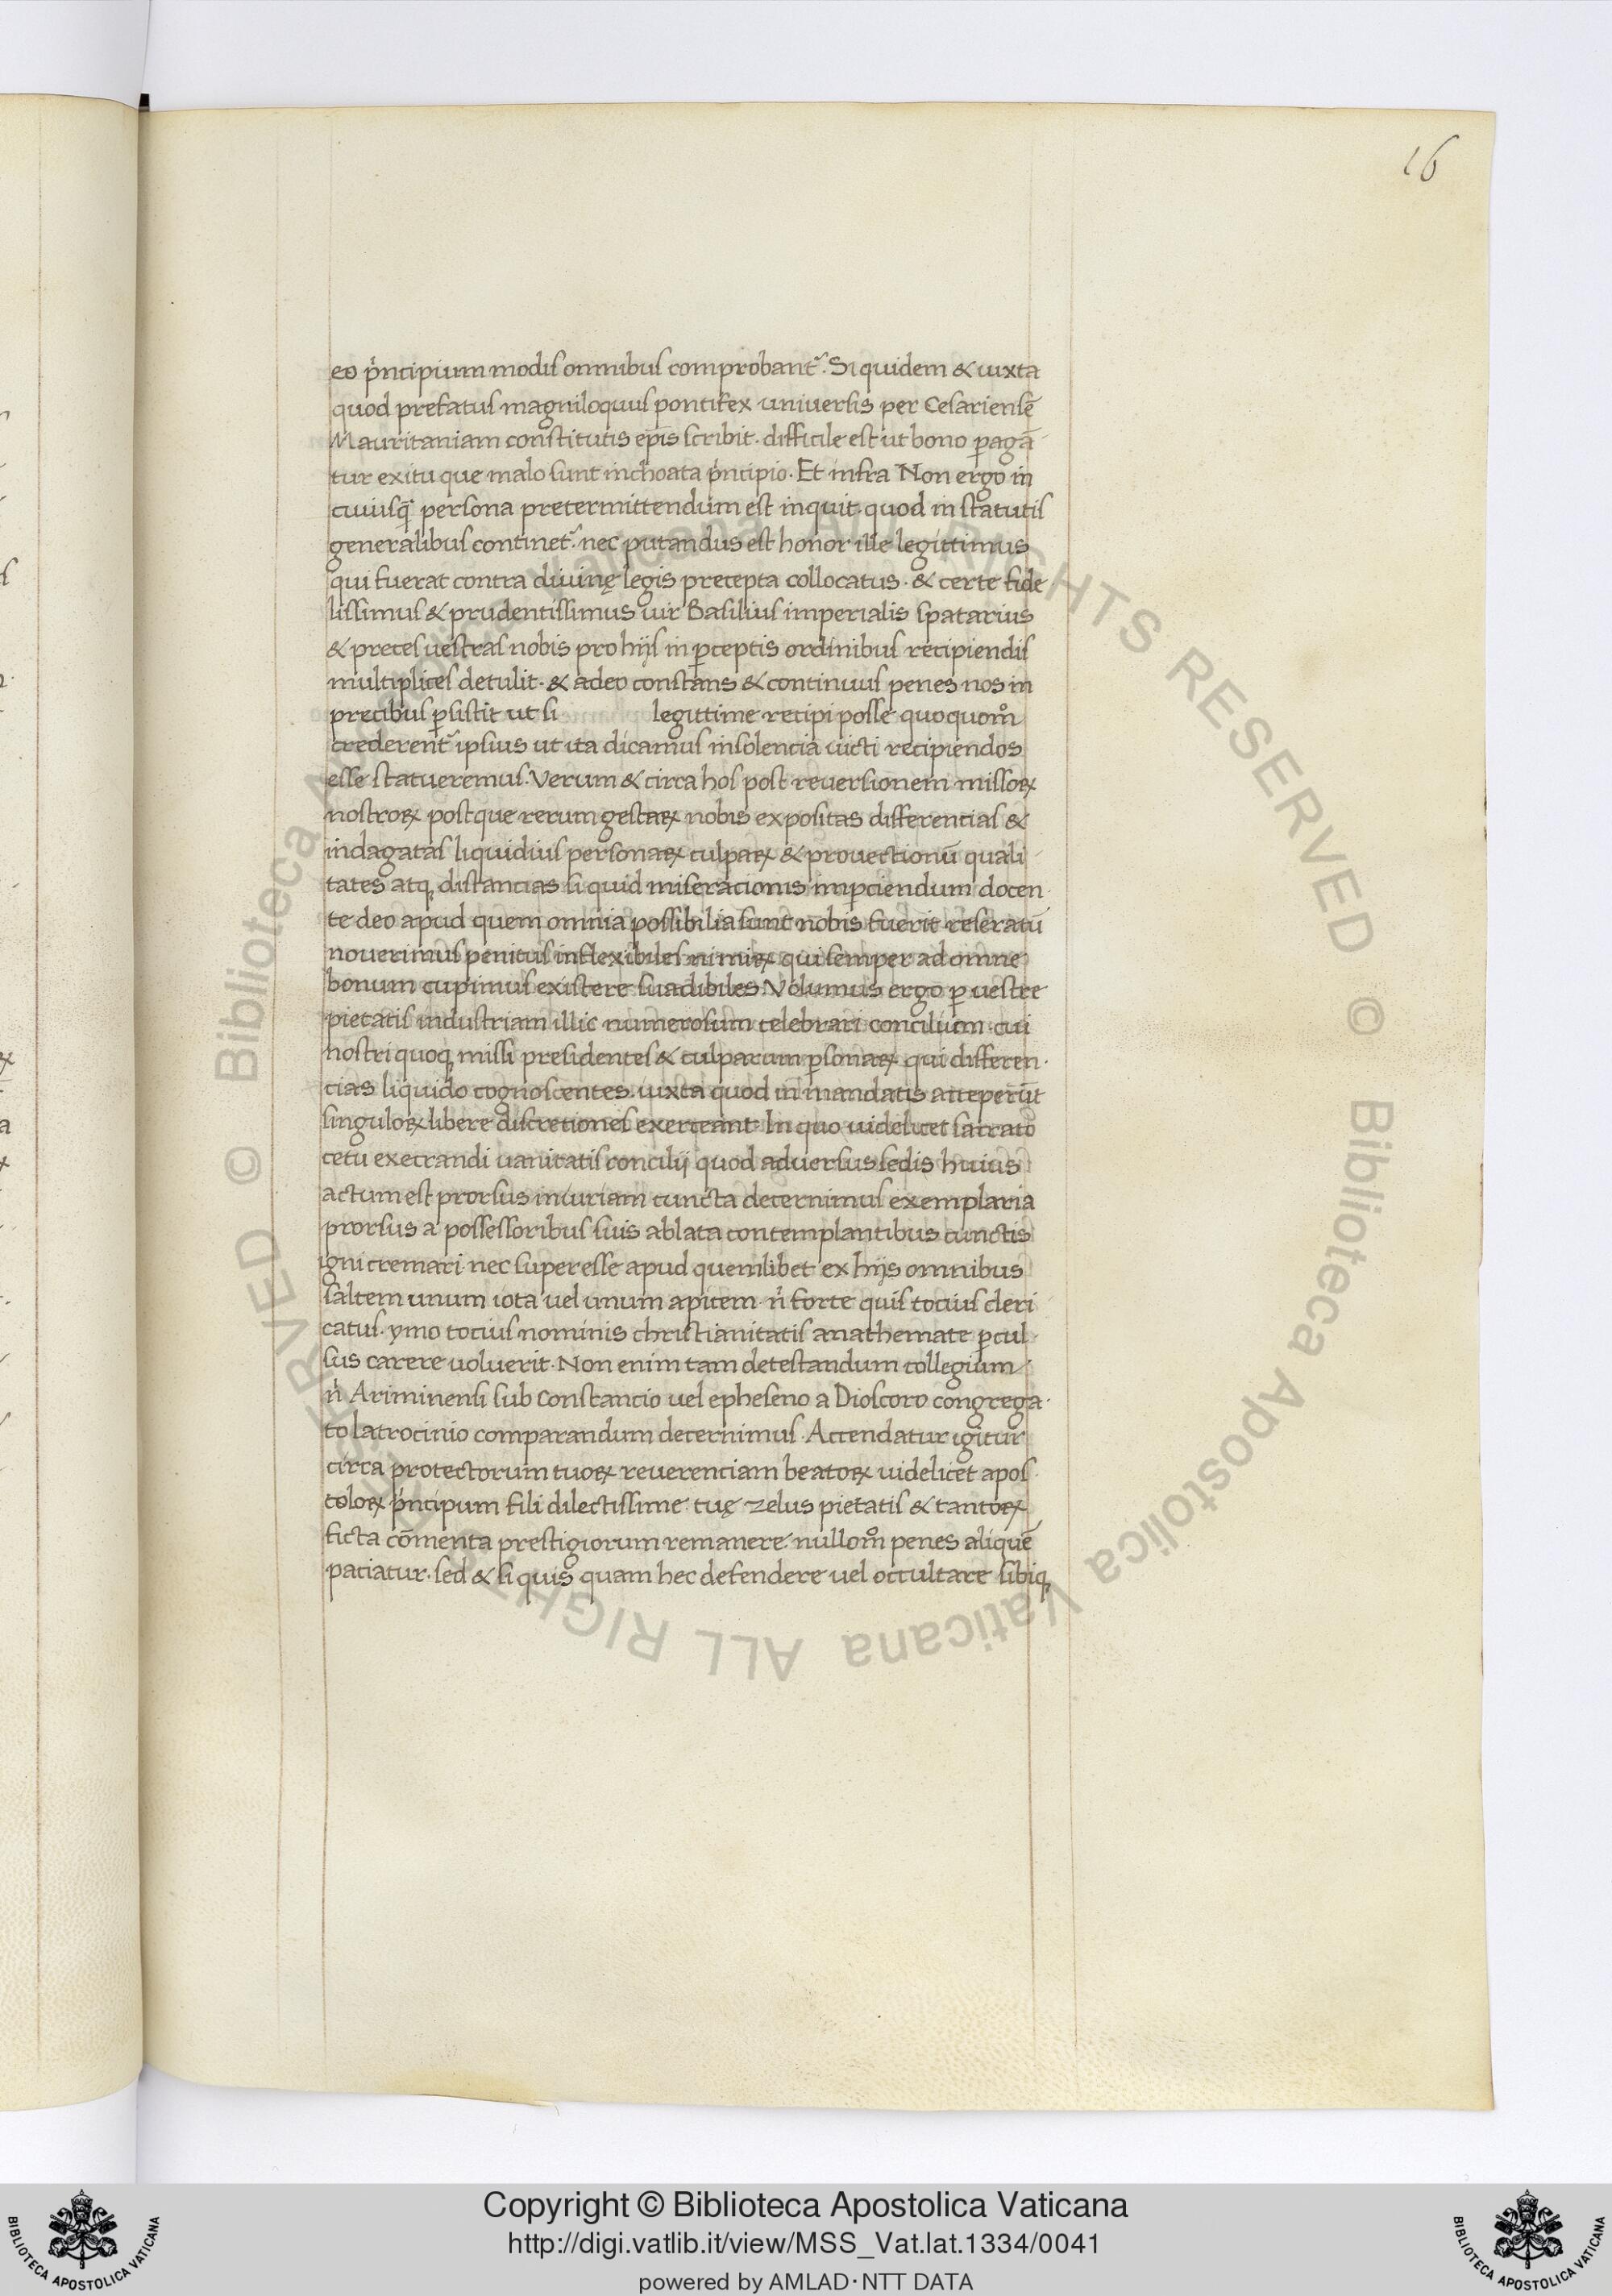 16
eo p̓ncipium modis omnibus comprobant᷑. Siquidem & iuxta
quod prefatus magniloquus pontifex universis per Cesariensē
Mauritaniam constitutis ep̄is scribit. difficile est ut bono ꝑagā
tur exitu que malo sunt inchoata p̓ncipio. Et infra Non ergo in
cuiusq̃ persona pretermittendum est inquit. quod in statutis
generalibus continet᷑. nec putandus est honor ille legittimus
qui fuerat contra divinę legis precepta collocatus. & certe fide
lissimus & prudentissimus uir Basilius imperialis spatarius
& preces uestras nobis pro hijs in ꝑceptis ordinibus recipiendis
multiplices detulit. & adeo constans & continuus penes nos in
precibus ꝑsistit ut si legittime recipi posse quoquom̊
crederent᷑ ipsius ut ita dicamus insolencia uicti recipiendos
esse statueremus. Verum & circa hos post reuersionem missoꝝ
nostroꝝ postque rerum gestaꝝ nobis expositas differencias &
indagatas liquidius personaꝝ culpaꝝ & prouectionū quali
tates atq; distancias si quid miseracionis imꝑciendum docen
te deo apud quem omnia possibilia sunt nobis fuerit reseratū
nouerimus penitus inflexibiles nimiꝝ qui semper ad omne
bonum cupimus existere suadibiles. Volumus ergo ꝑ uestre
pietatis industriam illic numerosum celebrari concilium cui
nostri quoq; missi presidentes & culparum ꝑsonaꝝ qui differen
cias liquido cognoscentes iuxta quod in mandatis acceperūt
singuloꝝ libere discretiones exerceant. In quo uidelicet sacrato
cetu execrandi uanitatis concilij quod aduersus sedis huius
actum est prorsus iniuriam cuncta decernimus exemplaria
prorsus a possessoribus suis ablata contemplantibus cunctis
igni cremari. nec superesse apud quemlibet ex hijs omnibus
saltem unum iota uel unum apicem. n̓ forte quis tocius cleri
catus. ymo tocius nominis christianitatis anathemate ꝑcul
sus carere uoluerit. Non enim tam detestandum collegium
n̓ Ariminensi sub Constancio uel epheseno a Dioscoro congrega
to latrocinio comparandum decernimus. Accendatur igitur
circa protectorum tuoꝝ reuerenciam beatoꝝ uidelicet apos
toloꝝ p̓ncipum fili dilectissime tuę zelus pietatis & tantoꝝ
ficta cōmenta prestigiorum remanere. nullom̊ penes aliquē
paciatur. sed & si quis quam hec defendere uel occultare sibiq;
Copyright © Biblioteca Apostolica Vaticana
http://digi.vatlib.it/view/MSS_Vat.lat.1334/0041
powered by AMLAD·NTT DATA
BIBLIOTECA APOSTOLICA VATICANA
BIBLIOTECA APOSTOLICA VATICANA
© Biblioteca Apostolica Vaticana ALL RIGHTS RESERVED
© Biblioteca Apostolica Vaticana ALL RIGHTS RESERVED